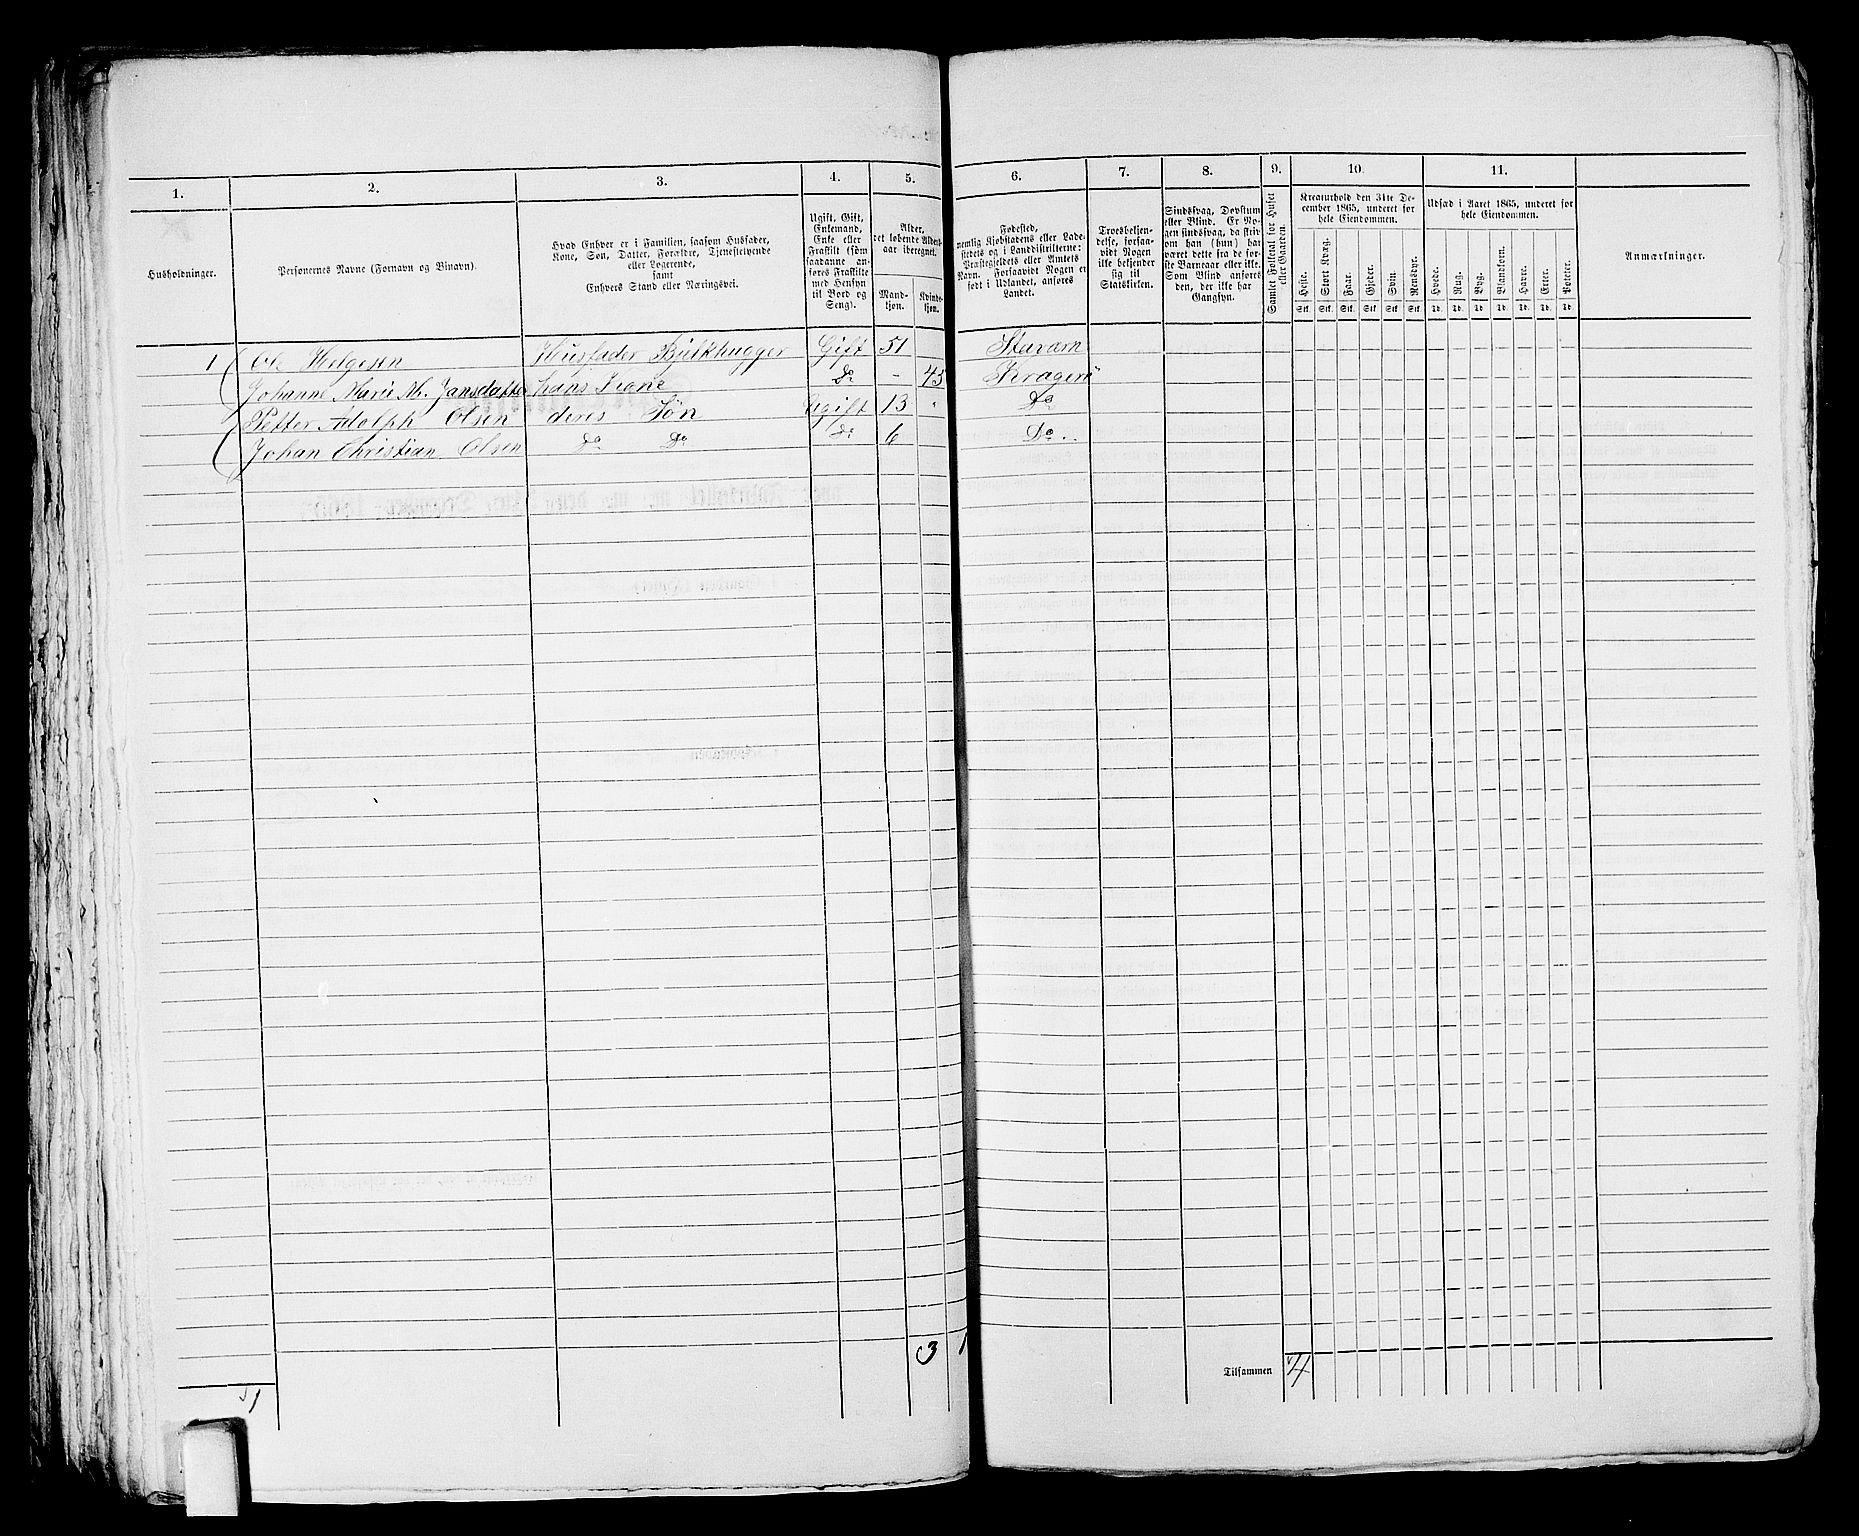 1. 2. 3. 4. 5. 6. 7. 8. 9. 10. 11.
Husholdninger.
Personernes Navne (Fornavn og Binavn).
Hvad Enhver er i Familien, saasom Husfader,
Kone, Søn, Datter, Forældre, Tjenestetyende
eller Logerende,
samt
Enhvers Stand eller Næringsvei.
Ugift, Gift,
Enkemand,
Enke eller
Fraskilt (som
saadanne an-
føres Fraskilte
med Hensyn
til Bord og
Seng).
Alder,
det løbende Alders-
aar iberegnet.
Mand-
kjøn.
Kvinde-
kjøn.
Fødested,
nemlig Kjøbstadens eller Lade-
stedets og i Landdistrikterne:
Præstegjeldets eller Amtets
Navn. Forsaavidt Nogen er
født i Udlandet, anføres
Landet.
Troesbekjen-
delse, forsaa-
vidt Nogen
ikke bekjender
sig til
Statskirken.
Sindssvag, Døvstum
eller Blind. Er No-
gen sindssvag, da skriv
om han (hun) har
været dette fra de før-
ste Barneaar eller ikke.
Som Blind anføres
den, der ikke har
Gangsyn.
Samlet Folketal for Huset
eller Gaarden.
Kreaturhold den 31te De-
cember 1865, underet for
hele Eiendommen.
Heste. Stort Kvæg. Faar. Gjeder. Svin. Rensdyr.
Stk. Stk. Stk. Stk. Stk. Stk.
Udsæd i Aaret 1865, underet for
hele Eiendommen.
Hvede. Rug. Byg. Blandkorn. Havre. Erter. Poteter.
Td. Td. Td. Td. Td. Td. Td.
Anmærkninger.
1 Ole Helgesen Husfader Bjelkhugger Gift 51 Staværn
Johanne Marie M. Jansdatter hans Kone Do - 45 Kragerö
Petter Adolph Olsen deres Søn Ugift 13 " Do
Johan Christian Olsen Do Do Do 6 Do
3 1
Tilsammen 4
1